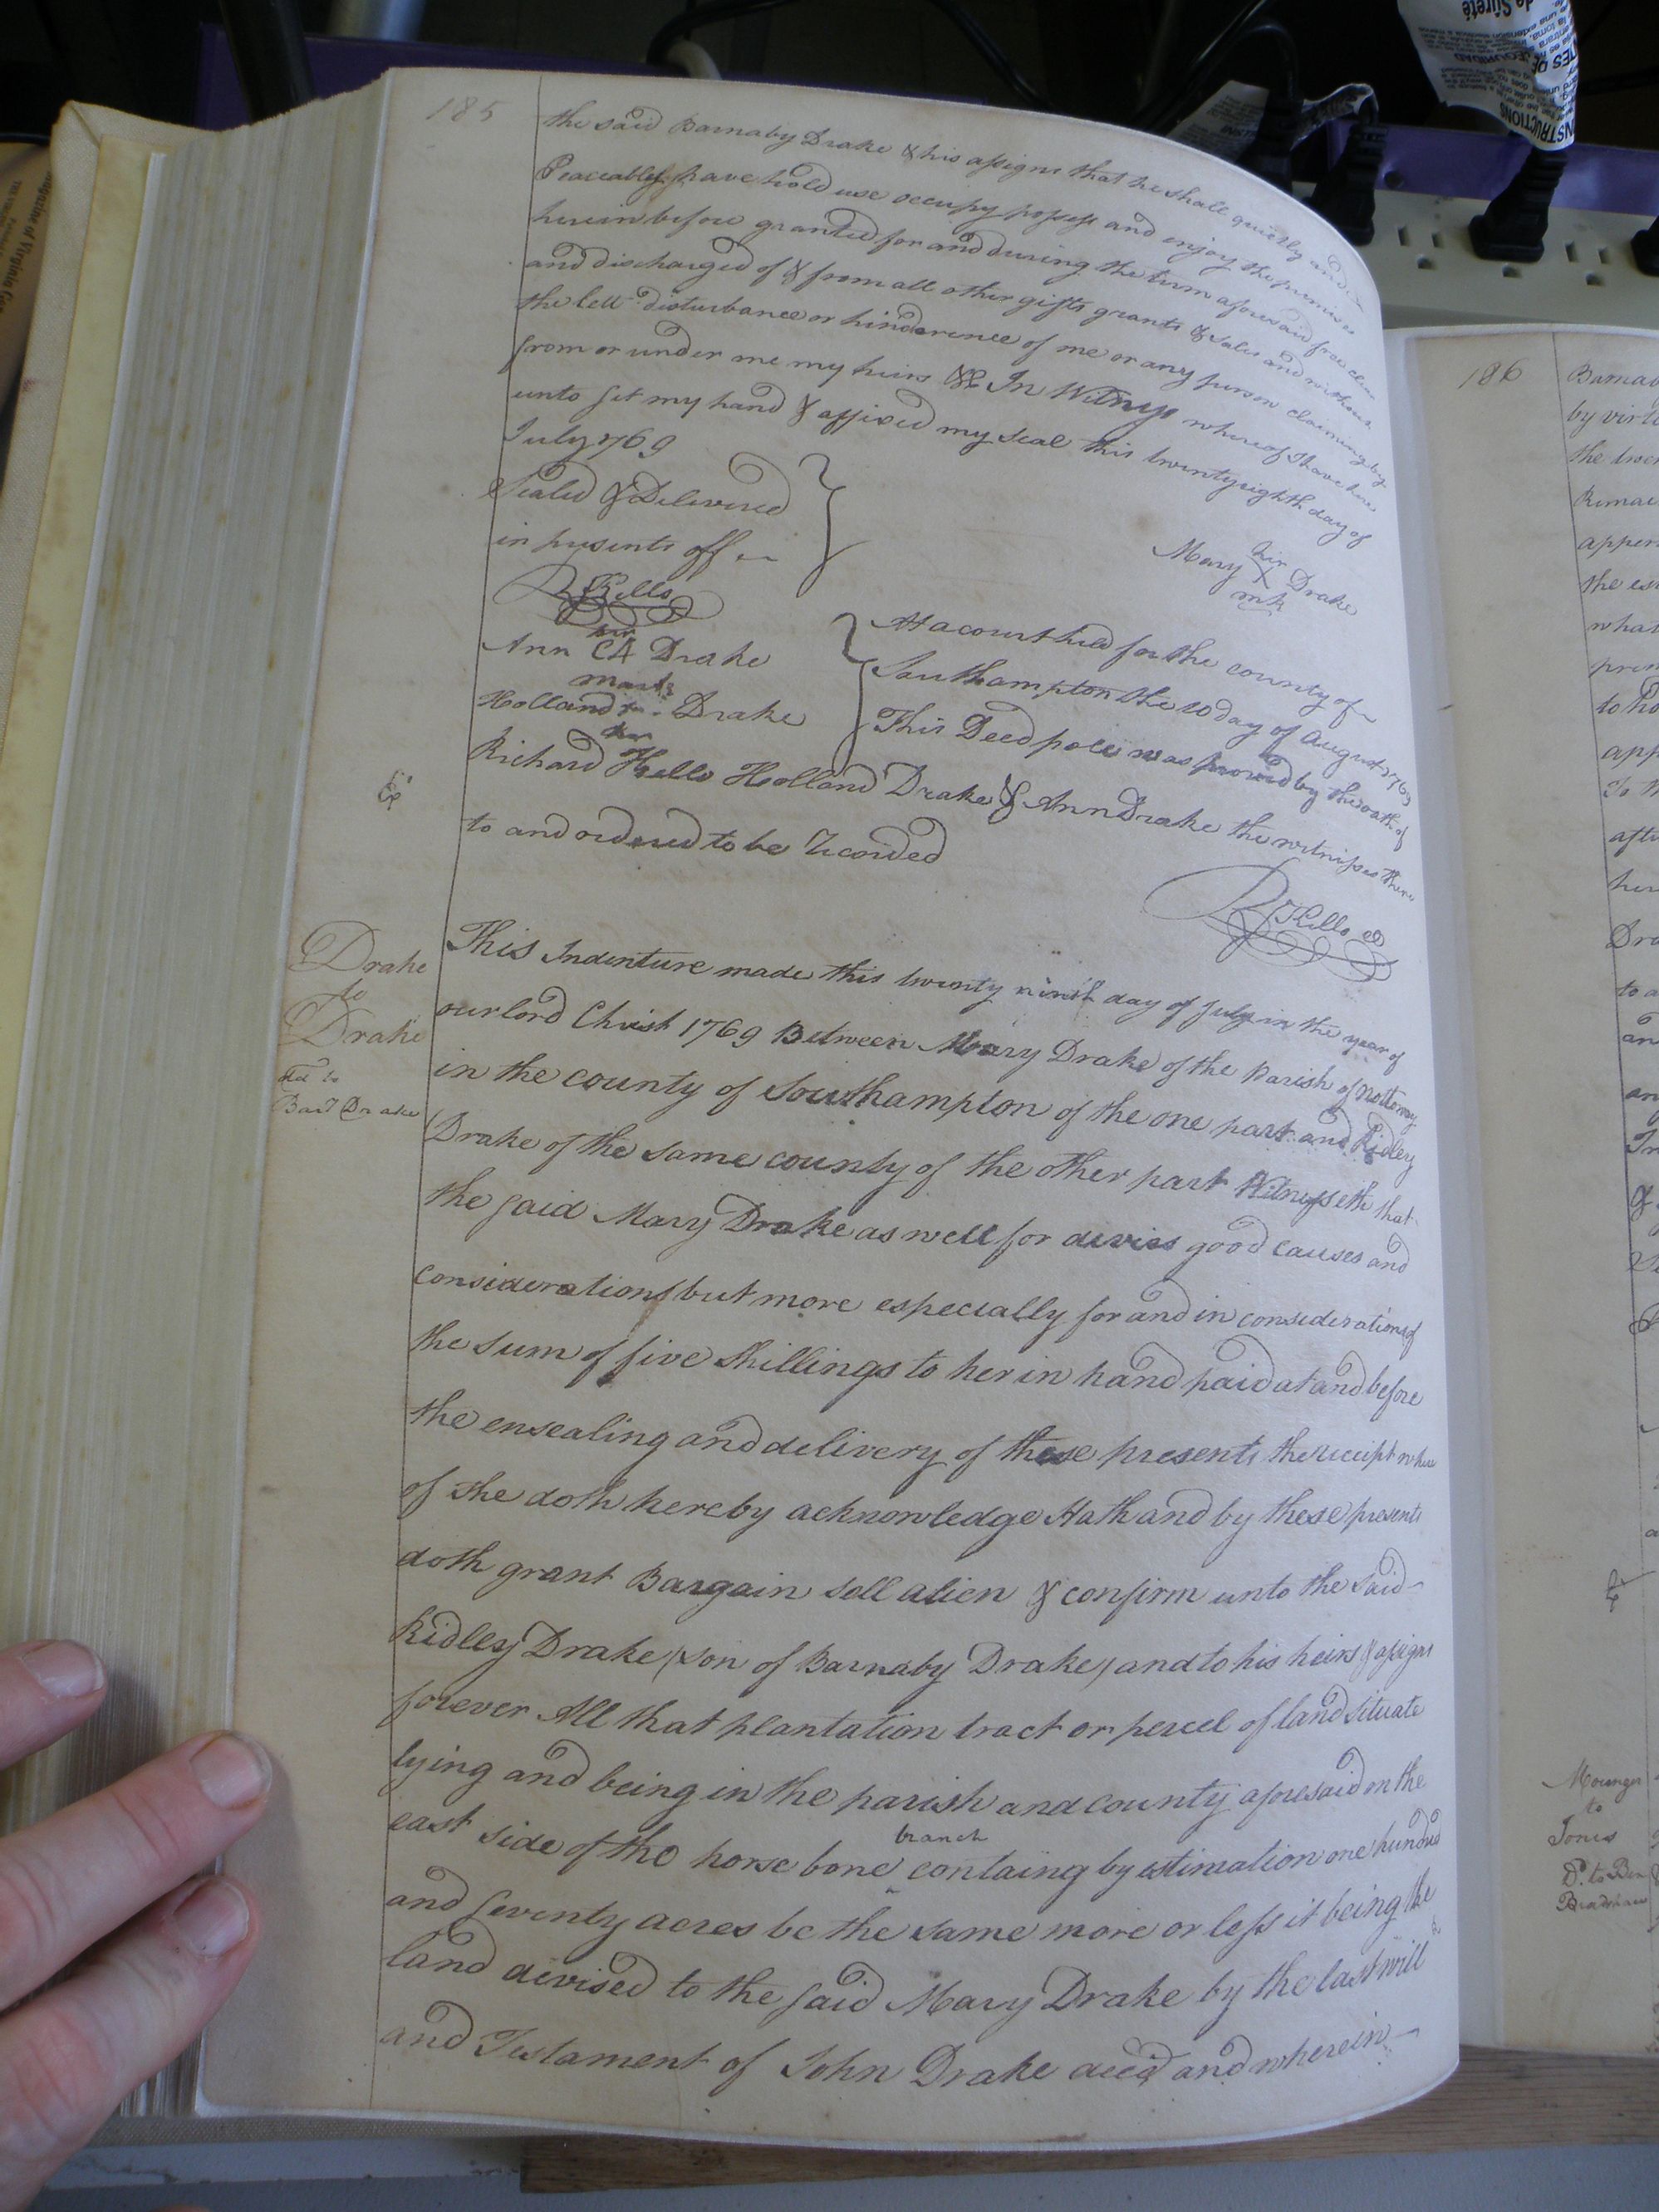 185
the said Barnaby Drake & his assigns that he shall quietly and
Peaceably have hold use occupy possess and enjoy the premises
herein before granted for and during the term aforesaid free clear
and discharged of & from all other gifts grants & sales and without
the lett disturbance or hinderence of me or any person claiming by
from or under me my heirs &c In Witness whereof I have here
unto set my hand & affixed my seal this twenty eighth day of
July 1769
Sealed & Delivered
in presents off
Mary her X mk Drake
R Kello
Ann her CA mark Drake
Holland Drake
At a court held for the county of
Southampton the 10 day of August 1769
This Deed pole was proved by the oath of
Richard Kello Holland Drake & Ann Drake the witnesses there
to and ordered to be Recorded
Ex
R Kello
Drake
to
Drake
Dd to
Drake
This Indenture made this twenty ninth day of July in the year of
our lord Christ 1769 Between Mary Drake of the Parish of Nottoway
in the county of Southampton of the one part and Ridley
Drake of the same county of the other part Witnesseth that
the said Mary Drake as well for divers good causes and
considerations but more especially for and in consideration of
the sum of five shillings to her in hand paid at and before
the ensealing and delivery of these presents the receipt where
of she doth hereby acknowledge Hath and by these presents
doth grant Bargain sell alien & confirm unto the said
Ridley Drake (son of Barnaby Drake) and to his heirs & assigns
forever All that plantation tract or percel of land situate
lying and being in the parish and county aforesaid on the
east side of the horse bone branch containg by estimation one hundred
and seventy acres be the same more or less it being the
land devised to the said Mary Drake by the last will
and Testament of John Drake decd and wherein
186
by virt
Remai
the es
what
app
afte
to a
Mounger
to
Jones
D. to Ben
Bradshaw